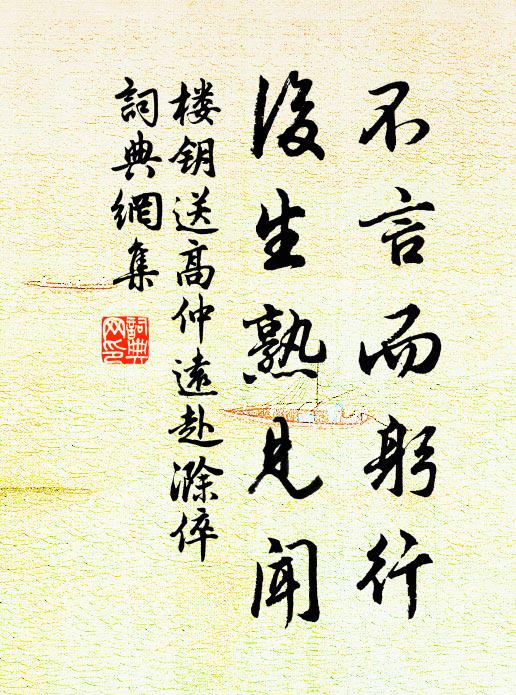 不言而躬行
後生熟見聞
楼钥送高仲遠赴滁倅
詞典網集
詞典
网印